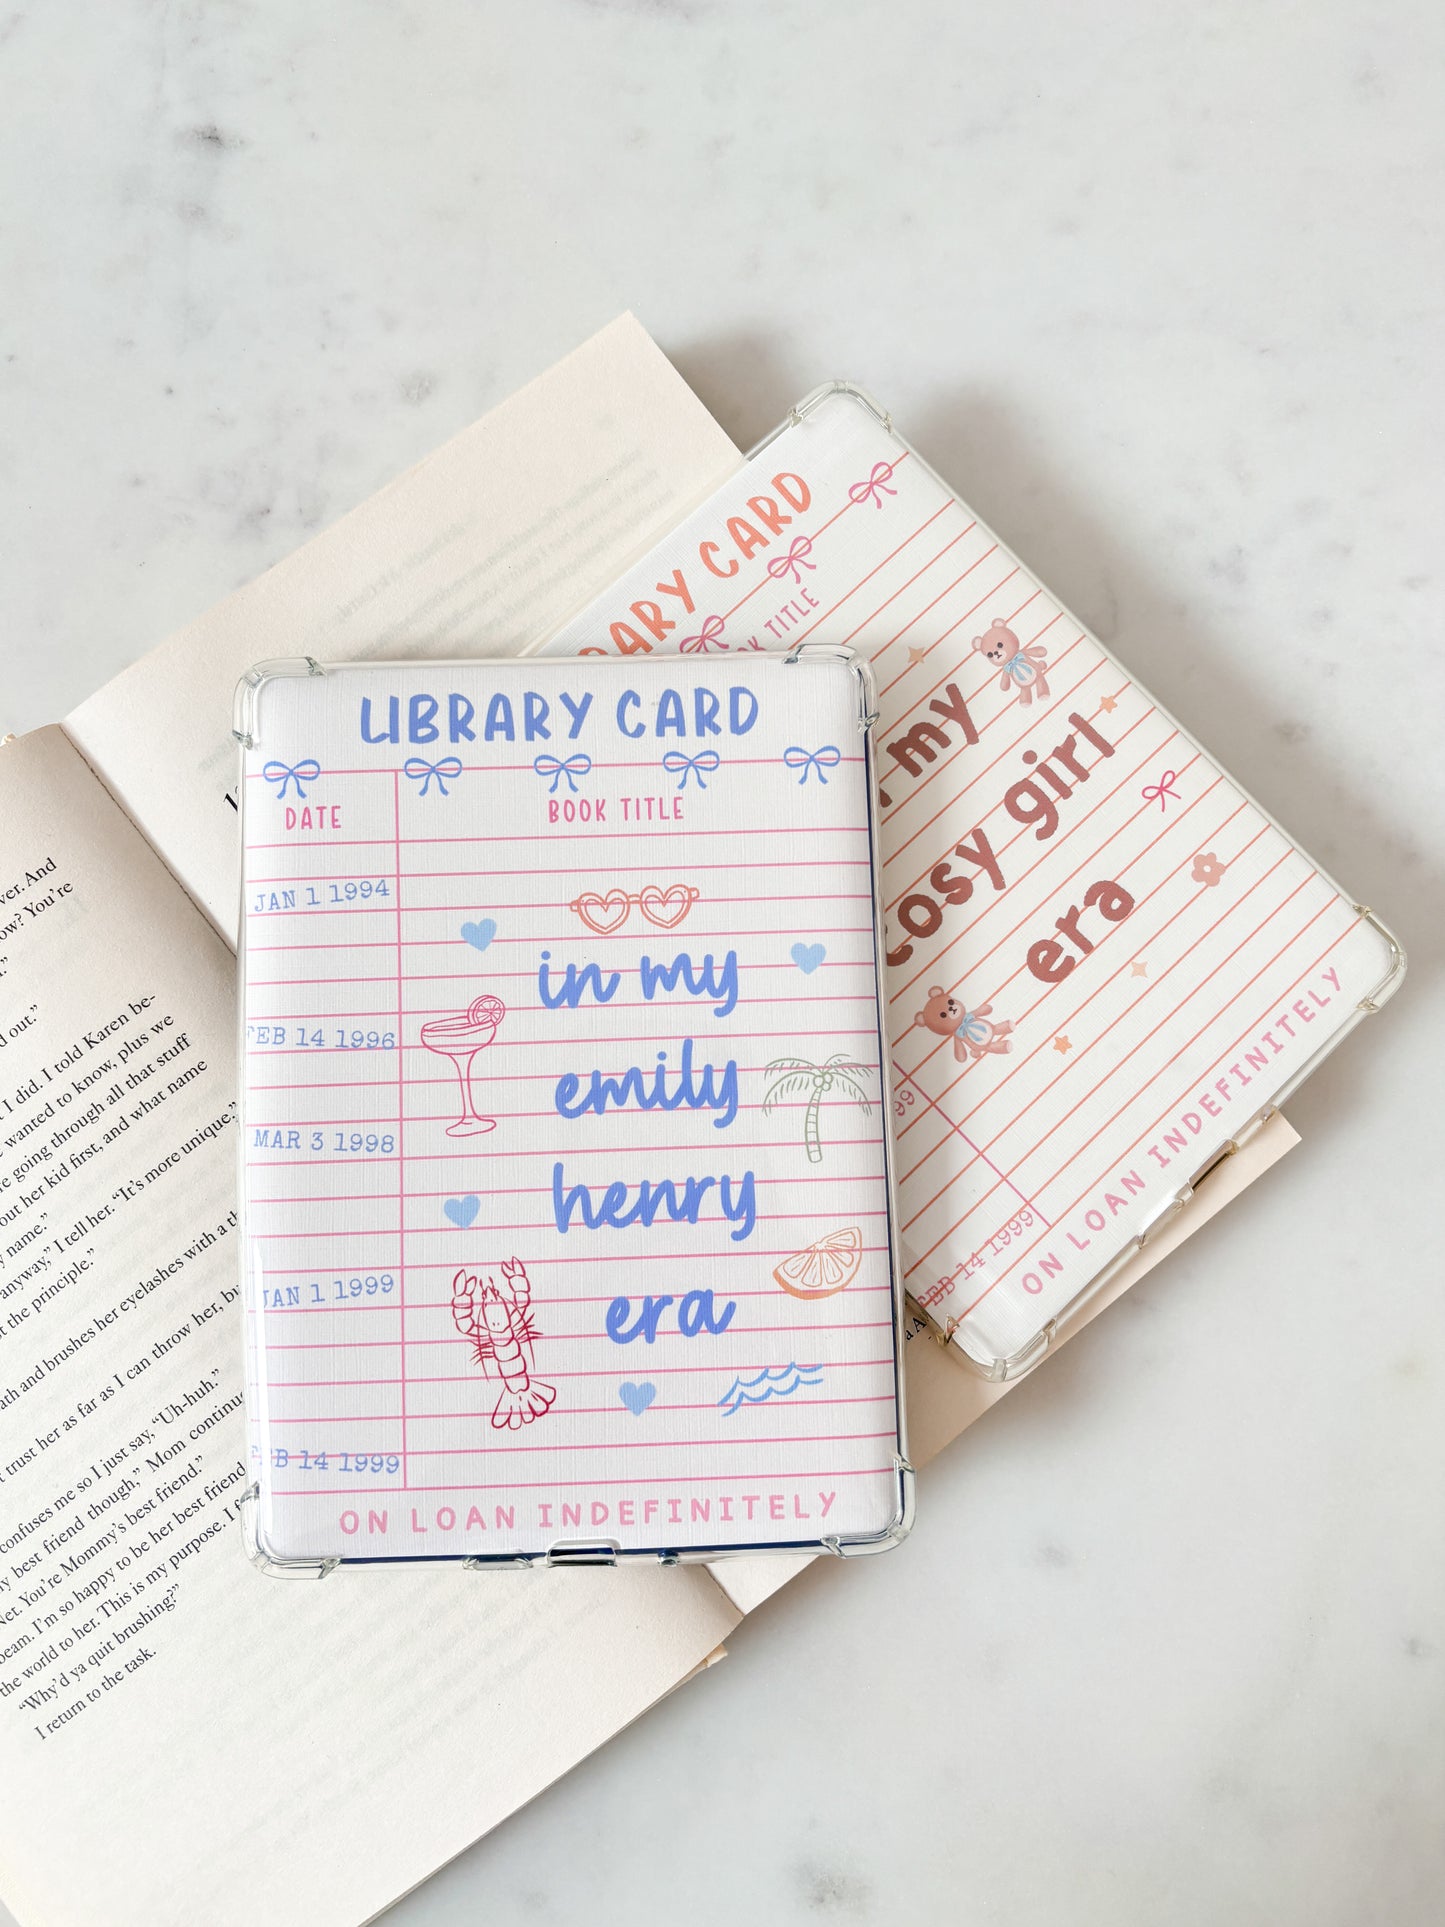 LIBRARY CARD
DATE
BOOK TITLE
JAN 1 1994
FEB 14 1996
MAR 3 1998
JAN 1 1999
FEB 14 1999
in my
emily
henry
era
ON LOAN INDEFINITELY
CARD
TITLE
my
cosy girl
era
99
FEB 14 1999
ON LOAN INDEFINITELY
And
You're
out."
I did. I told Karen be-
wanted to know, plus we
going through all that stuff
out her kid first, and what name
name."
anyway," I tell her. "It's more unique,"
the principle."
and brushes her eyelashes with a
trust her as far as I can throw her,
confuses me so I just say, "Uh-huh."
best friend though," Mom
You're Mommy's best friend."
beam. I'm so happy to be her best friend
the world to her. This is my purpose. I
"Why'd ya quit brushing?"
I return to the task.